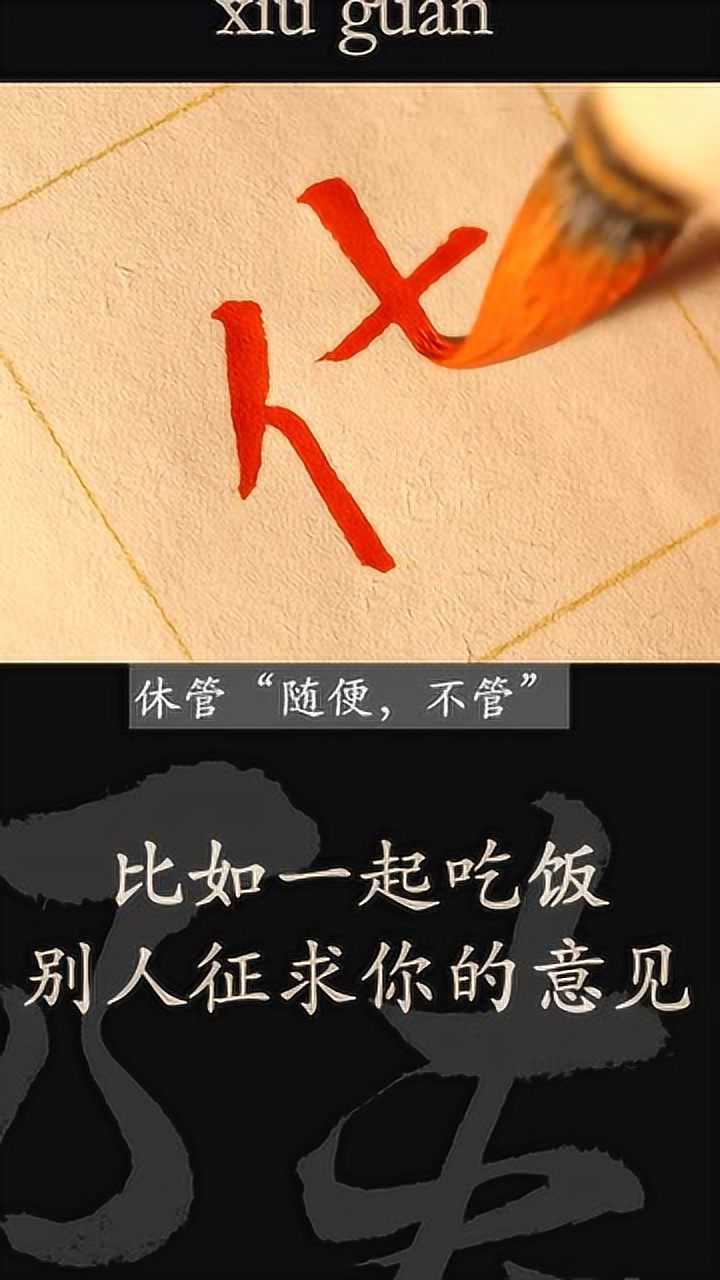 xiu guan
休管“随便，不管”
比如一起吃饭
别人征求你的意见